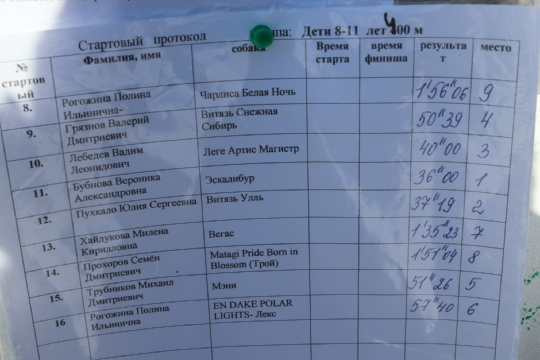 Стартовый протокол ппа: Дети 8-11 лет 400 м
№ стартов ый Фамилия, имя собака Время старта время финиша результа т место
8. Рогожина Полина Ильинична- Чарлиса Белая Ночь 1'56"06 9
9. Грязнов Валерий Дмитриевич Витязь Снежная Сибирь 50"39 4
10. Лебедев Вадим Леонидович Леге Артис Магистр 40"00 3
11. Бубнова Вероника Александровна Эскалибур 36"00 1
12. Пухкало Юлия Сергеевна Витязь Улль 37"19 2
13. Хайдукова Милена Кирилловна Вегас 1'35"23 7
14. Прохоров Семён Дмитриевич Matagi Pride Born in Blossom (Трой) 1'51"04 8
15. Трубников Михаил Дмитриевич Мэни 51"26 5
16 Рогожина Полина Ильинична EN DAKE POLAR LIGHTS- Лекс 57"40 6